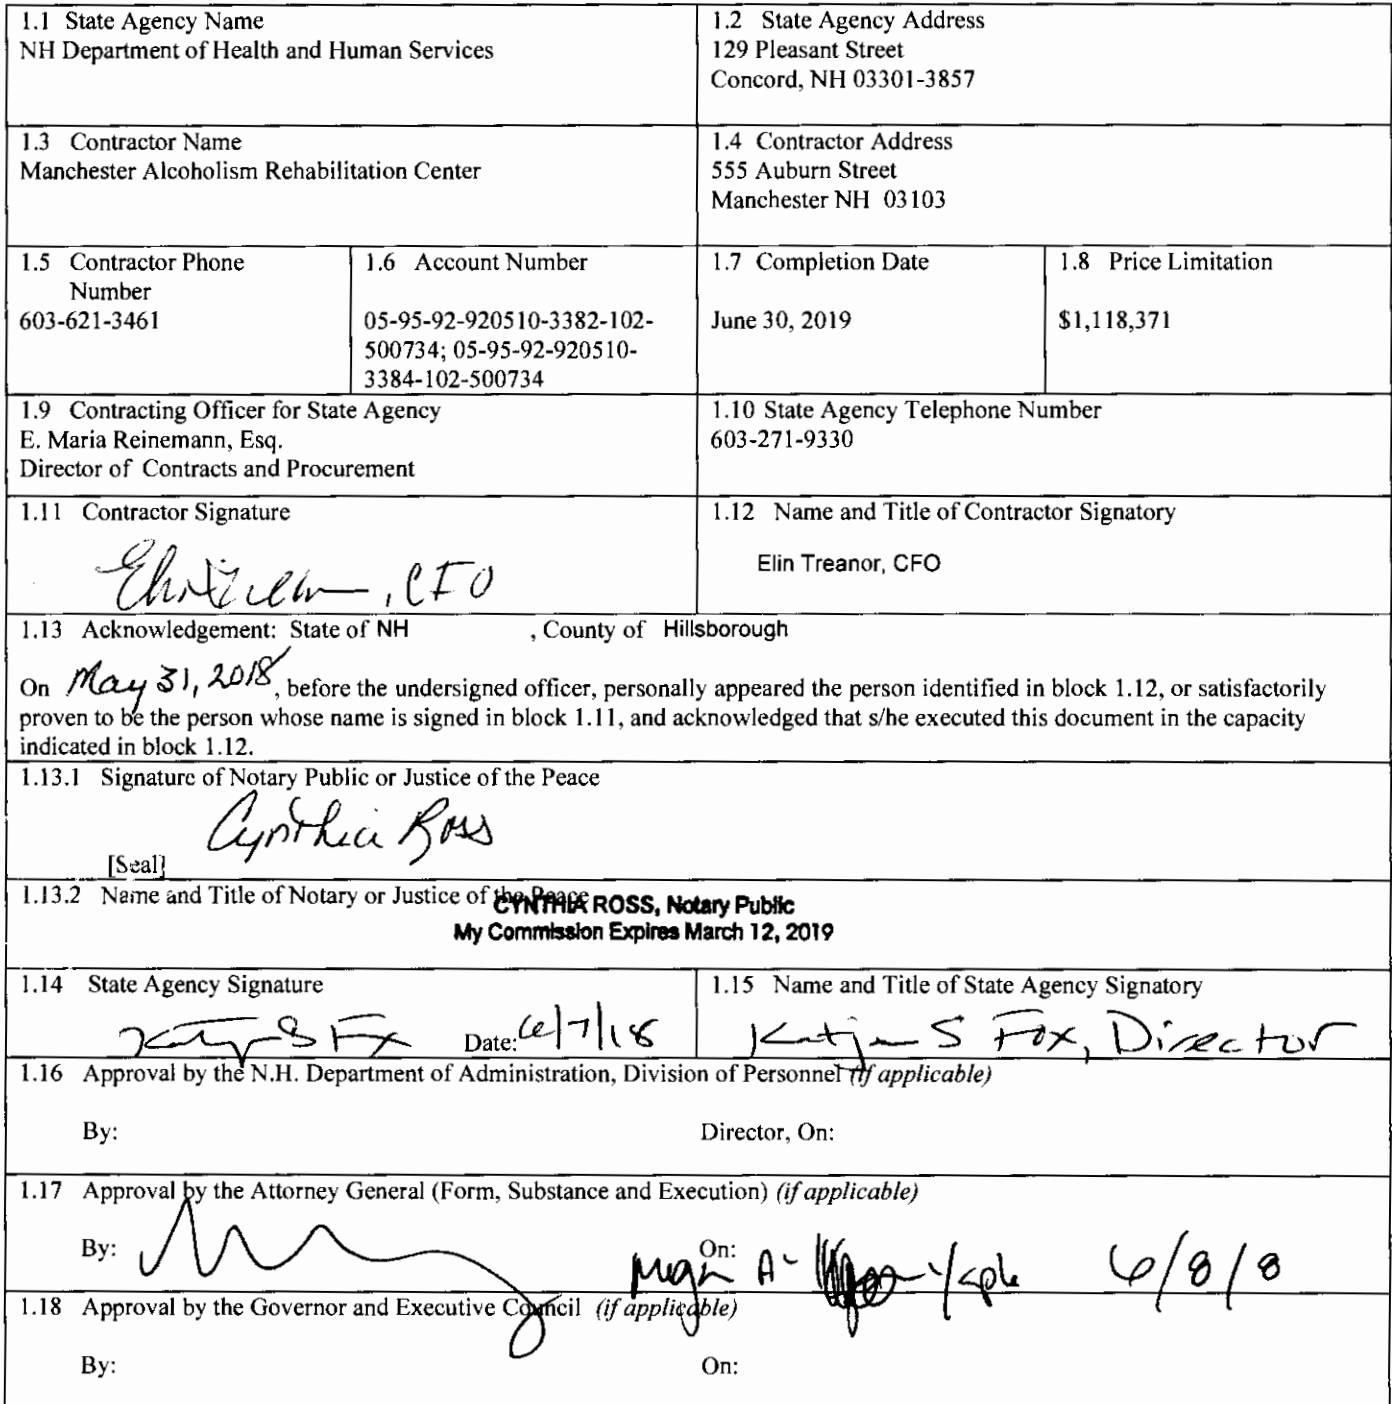 1.1 State Agency Name
NH Department of Health and Human Services
1.2 State Agency Address
129 Pleasant Street
Concord, NH 03301-3857
1.3 Contractor Name
Manchester Alcoholism Rehabilitation Center
1.4 Contractor Address
555 Auburn Street
Manchester NH 03103
1.5 Contractor Phone
Number
603-621-3461
1.6 Account Number
05-95-92-920510-3382-102-
500734; 05-95-92-920510-
3384-102-500734
1.7 Completion Date
June 30, 2019
1.8 Price Limitation
$1,118,371
1.9 Contracting Officer for State Agency
E. Maria Reinemann, Esq.
Director of Contracts and Procurement
1.10 State Agency Telephone Number
603-271-9330
1.11 Contractor Signature
, CFO
1.12 Name and Title of Contractor Signatory
Elin Treanor, CFO
1.13 Acknowledgement: State of NH , County of Hillsborough
On May 31, 2018, before the undersigned officer, personally appeared the person identified in block 1.12, or satisfactorily
proven to be the person whose name is signed in block 1.11, and acknowledged that s/he executed this document in the capacity
indicated in block 1.12.
1.13.1 Signature of Notary Public or Justice of the Peace
Cynthia Ross
[Seal]
1.13.2 Name and Title of Notary or Justice of the Peace
CYNTHIA ROSS, Notary Public
My Commission Expires March 12, 2019
1.14 State Agency Signature
Date: 6/7/18
1.15 Name and Title of State Agency Signatory
Katja S Fox, Director
1.16 Approval by the N.H. Department of Administration, Division of Personnel (if applicable)
By: Director, On:
1.17 Approval by the Attorney General (Form, Substance and Execution) (if applicable)
By: On: 6/8/8
1.18 Approval by the Governor and Executive Council (if applicable)
By: On: